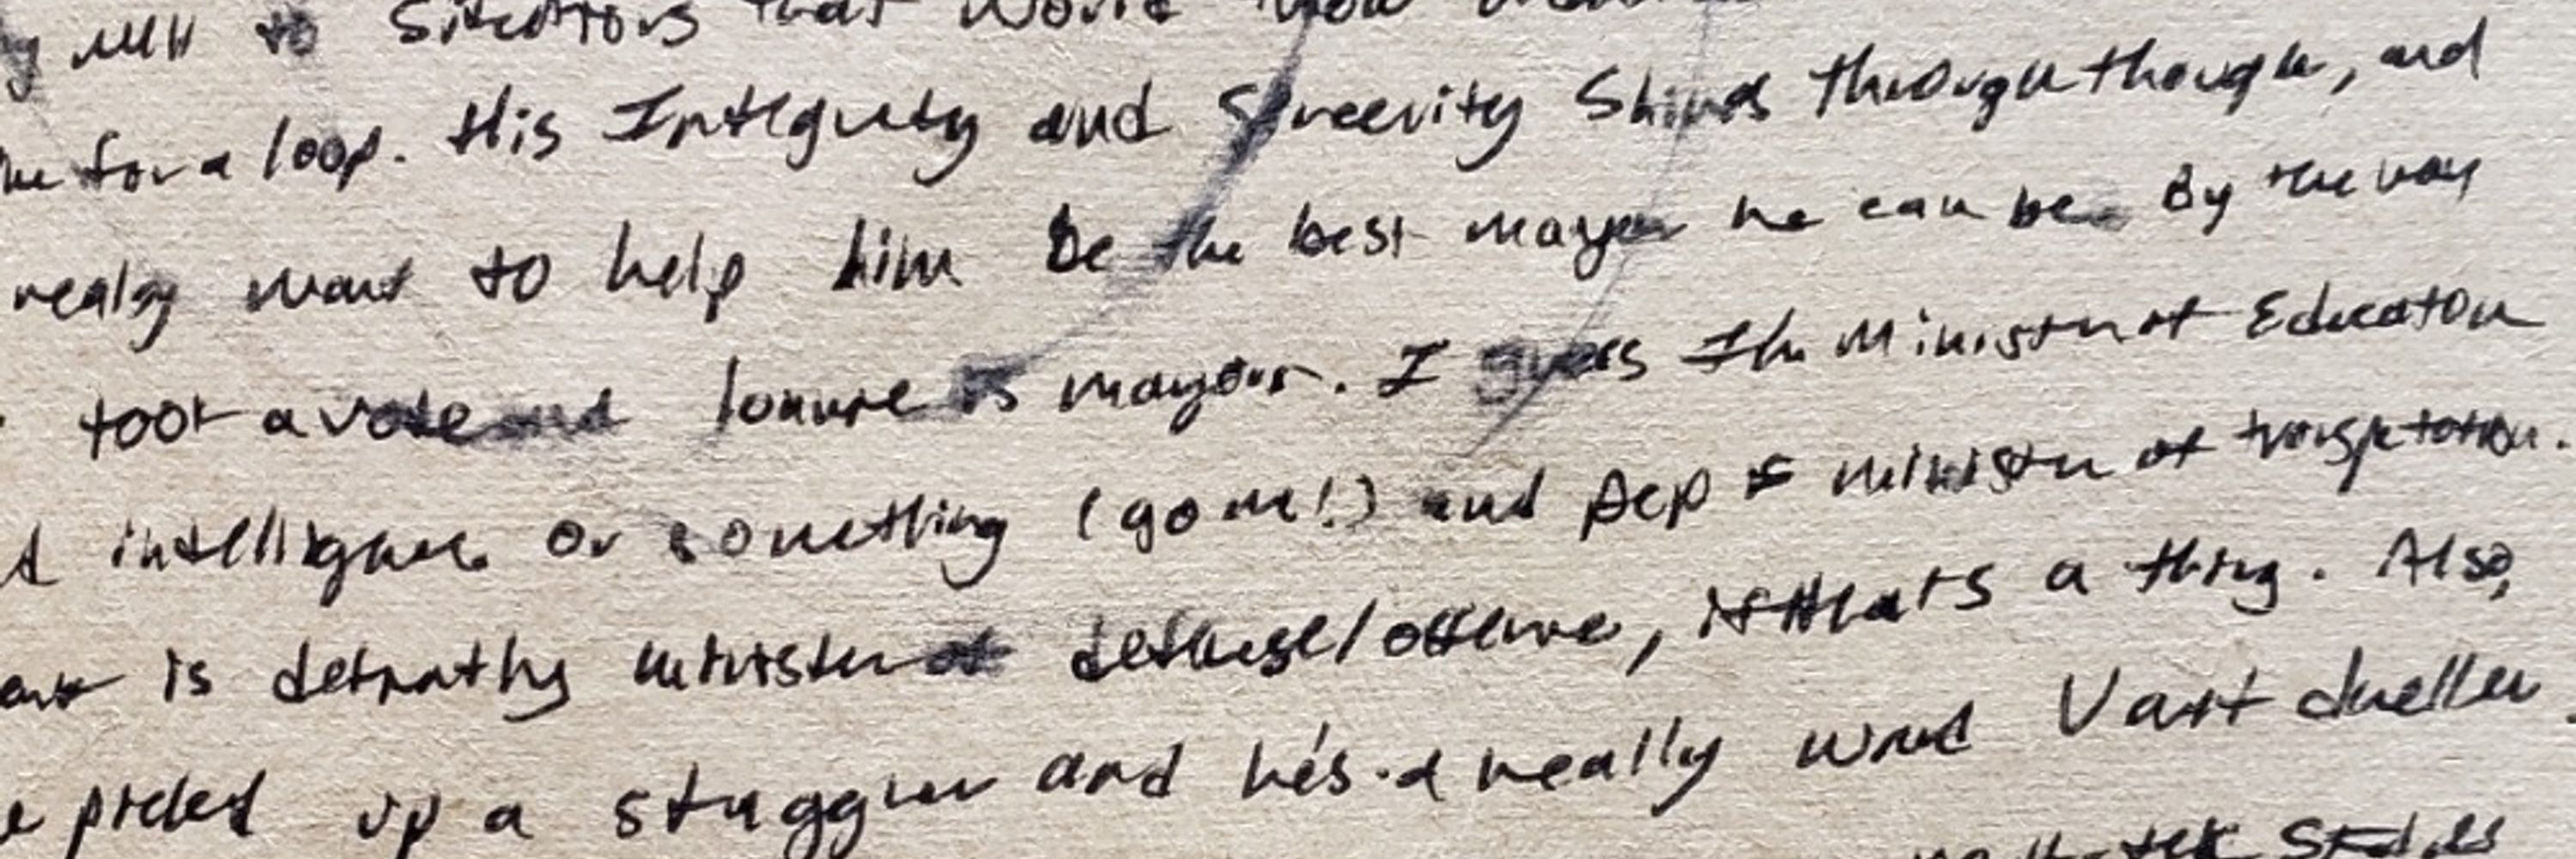 to situations that would
for a loop. His Integrity and Sincerity Shines through though, and
really want to help him be the best mayor he can be. By the way
took a vote and is mayor. I guess I'm Minister of Education
intelligence or something (go me!) and Acp is minister of transportation.
is definitely minister of defense/offense, if that's a thing. Also,
picked up a straggler and he's a really weird Vault dweller